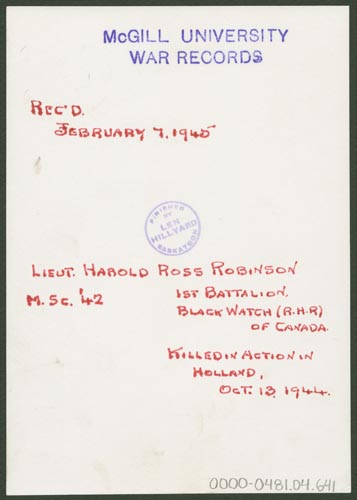 McGILL UNIVERSITY
WAR RECORDS
REC'D.
FEBRUARY 7, 1945
FINISHED
BY
LEN
HILLYARD
SASKATOON
LIEUT. HAROLD ROSS ROBINSON
M. Sc. '42
1ST BATTALION,
BLACK WATCH (R.H.R)
OF CANADA.
KILLED IN ACTION IN
HOLLAND,
OCT. 13, 1944.
0000-0481.04.641